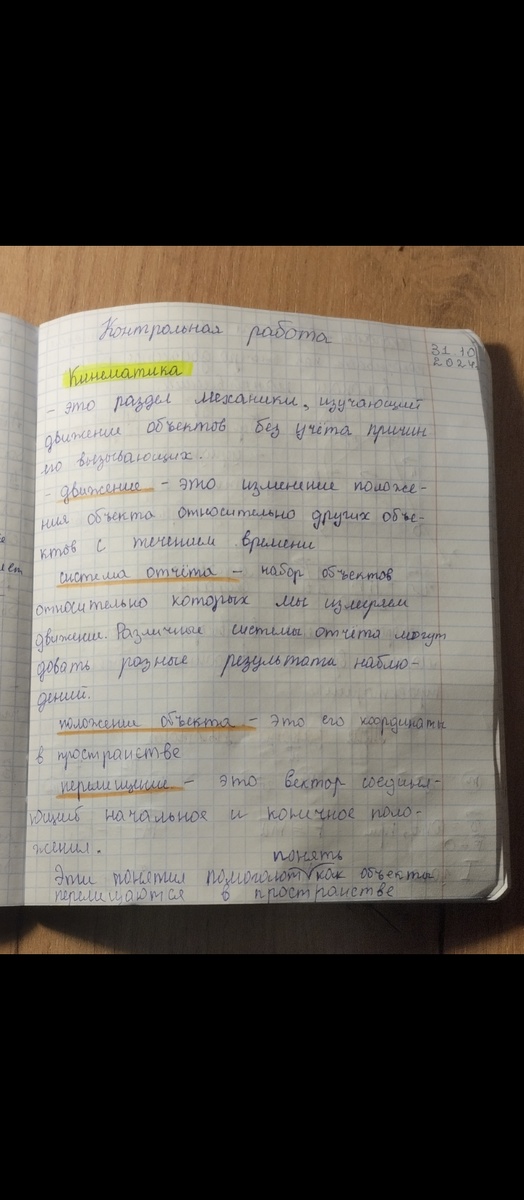 Контрольная работа
31.10
2024
Кинематика
- это раздел механики, изучающий
движение объектов без учёта причин
его вызывающих.
- движение - это изменение положе-
ния объекта относительно других объе-
ктов с течением времени
система отчёта - набор объектов
относительно которых мы измеряем
движение. Различные системы отчета могут
довать разные результата наблю-
дений.
положение объекта - это его координаты
в пространстве
перемищение - это вектор соединя-
ющий начальное и коничное поло-
жения.
понять
Эти понятия помогают как объекты
перемищаются в пространстве